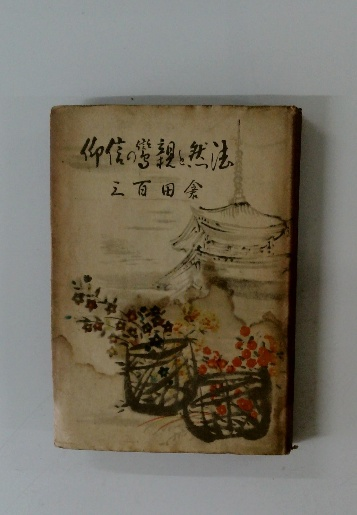 法然と親鸞の信仰
倉田百三